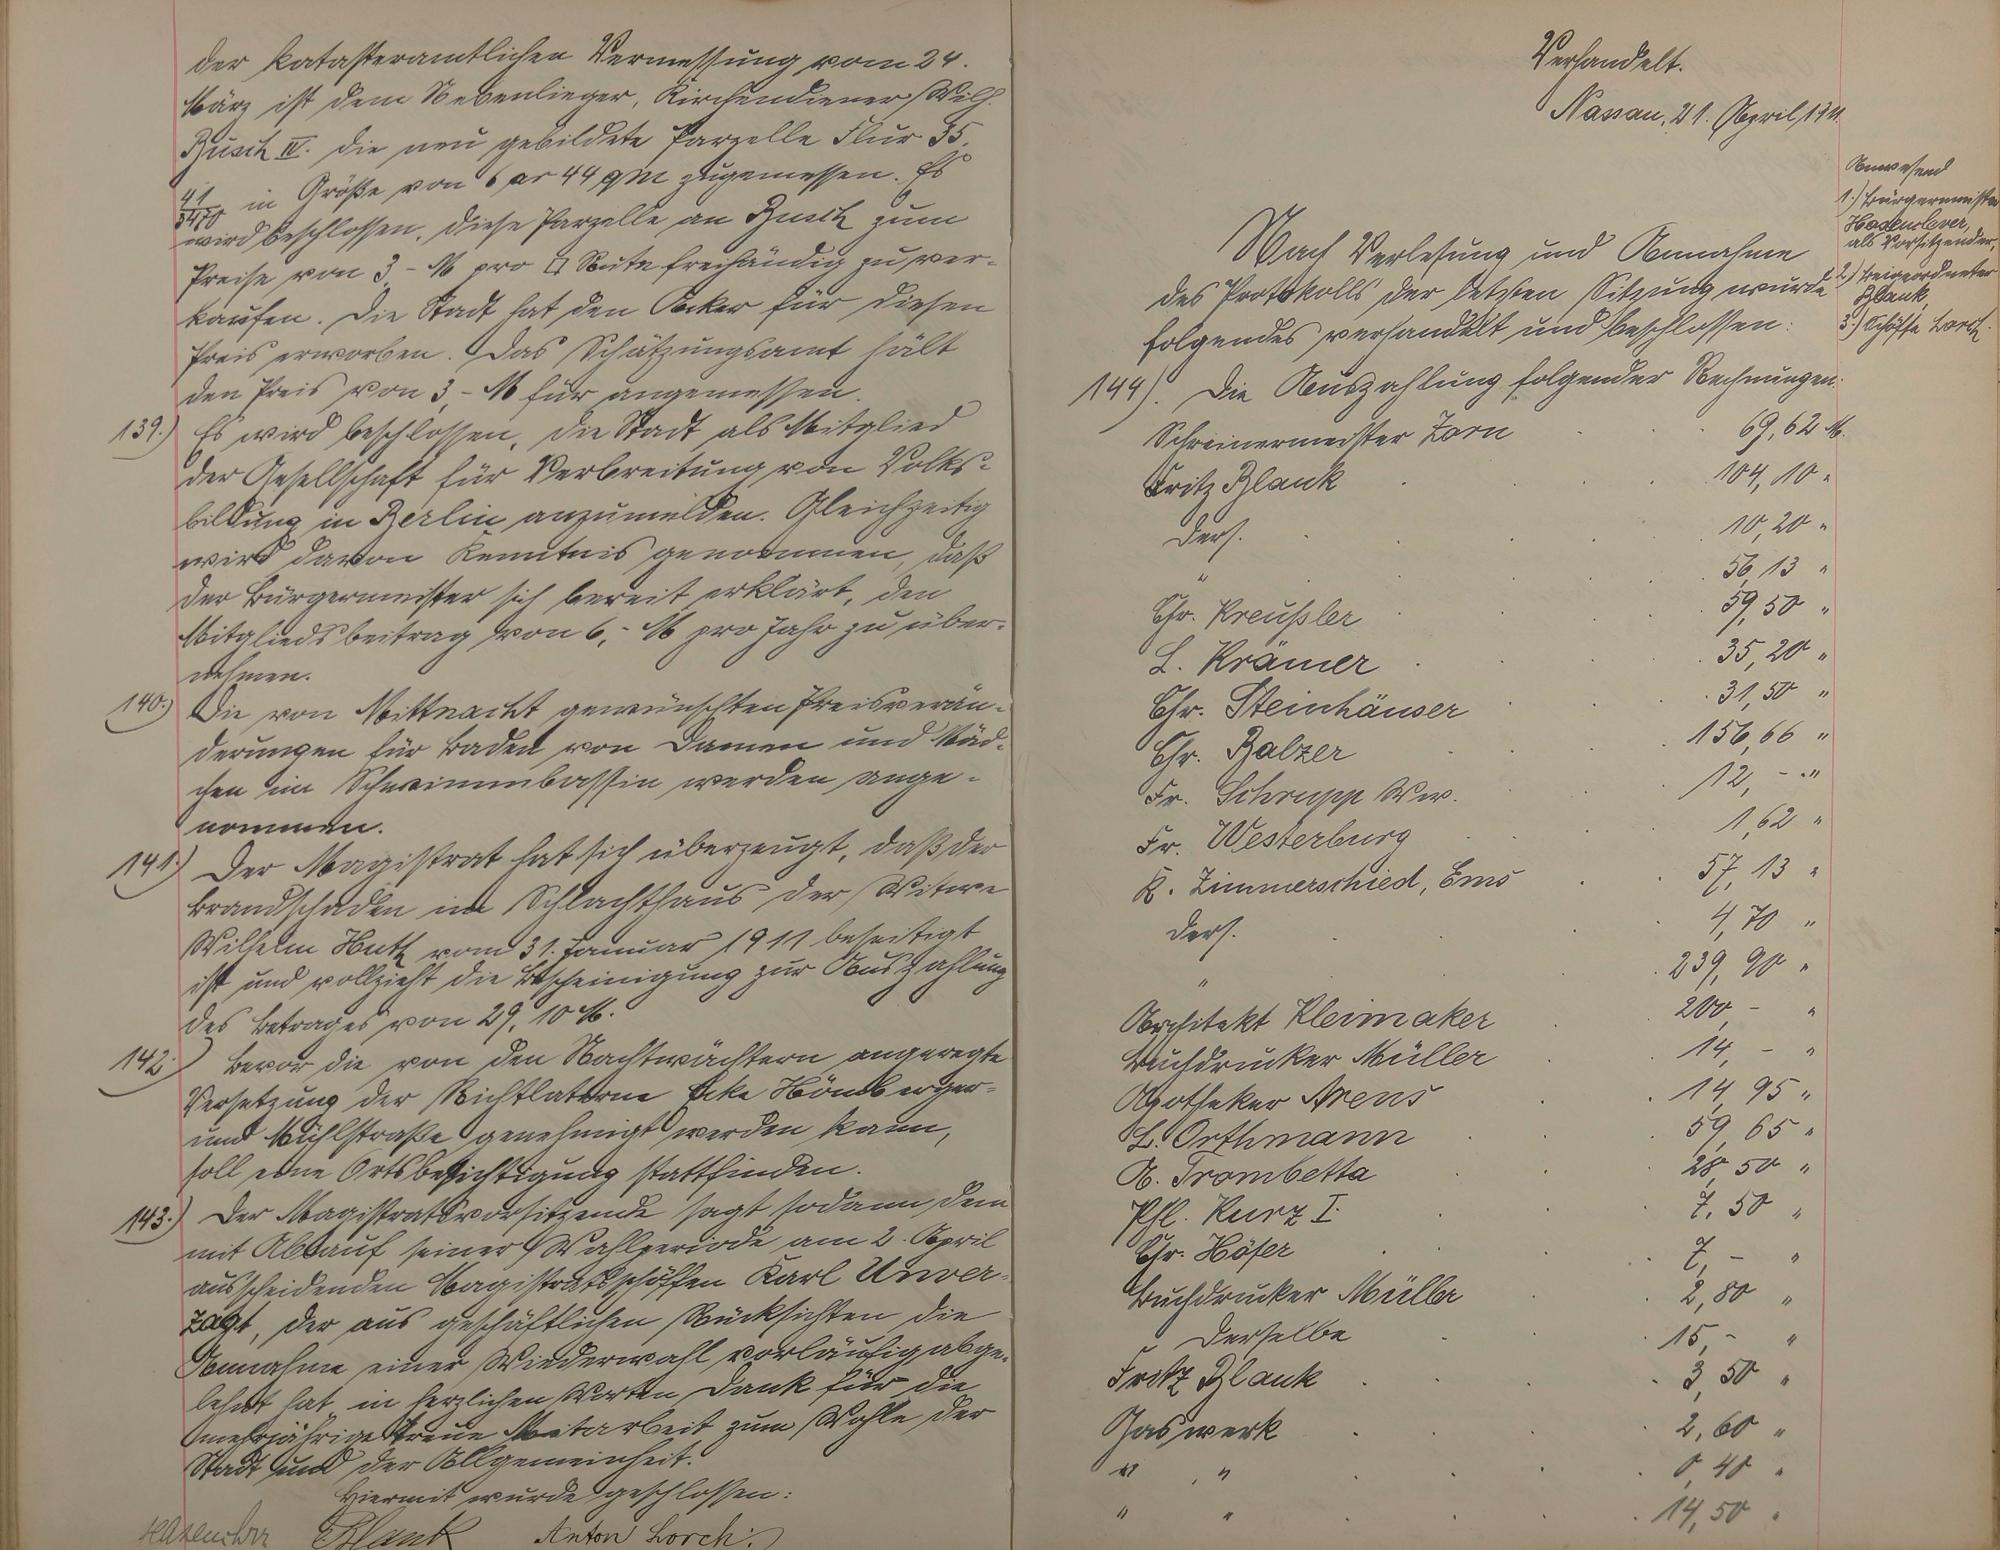 der katasteramtlichen Vermessung vom 24.
März ist dem Nebenlieger, Kirchendiener Wilh.
Busch IV. die neu gebildete Parzelle Flur 35.
41/3470 in Größe von 6 ar 44 qm zugemessen. Es
wird beschlossen, diese Parzelle an Busch zum
Preise von 3,- M pro □ Rute freihändig zu ver-
kaufen. Die Stadt hat den Acker für diesen
Preis erworben. Das Schätzungsamt hält
den Preis von 3,- M für angemessen.
139.) Es wird beschlossen, die Stadt als Mitglied
der Gesellschaft für Verbreitung von Volks-
bildung in Berlin anzumelden. Gleichzeitig
wird davon Kenntnis genommen, daß
der Bürgermeister sich bereit erklärt, den
Mitgliedsbeitrag von 6,- M pro Jahr zu über-
nehmen.
140.) Die von Mittnacht gewünschten Preisverän-
derungen für Baden von Damen und Mäd-
chen im Schwimmbassin werden ange-
nommen.
141.) Der Magistrat hat sich überzeugt, daß der
Brandschaden im Schlachthaus der Witwe
Wilhelm Huth vom 31. Januar 1911 beseitigt
ist und vollzieht die Bescheinigung zur Auszahlung
des Betrages von 29,10 M.
142.) Bevor die von den Nachtwächtern angeregte
Versetzung der Richtlaterne Ecke Hömberger-
und Mühlstraße genehmigt werden kann,
soll eine Ortsbesichtigung stattfinden.
143.) Der Magistratsvorsitzende sagt sodann dem
mit Ablauf seiner Wahlperiode am 2. April
ausscheidenden Magistratsschöffen Karl Unver-
zagt, der aus geschäftlichen Rücksichten die
Annahme einer Wiederwahl vorläufig abge-
lehnt hat, in herzlichen Worten Dank für die
mehrjährige treue Mitarbeit zum Wohle der
Stadt und der Allgemeinheit.
Hiermit wurde geschlossen:
Hasenclever Blank Anton Lorch.
Verhandelt.
Nassau, 21. April 1911.
Anwesend
1.) Bürgermeister
Hasenclever,
als Vorsitzender,
2.) Beigeordneter
Blank,
3.) Schöffe Lorch.
Nach Verlesung und Annahme
des Protokolls der letzten Sitzung wurde
folgendes verhandelt und beschlossen:
144). Die Auszahlung folgender Rechnungen:
Schreinermeister Zorn 69,62 M.
Fritz Blank 104,10 "
Ders. 10,20 "
" 56,13 "
Chr. Kreußler 59,50 "
L. Krämer 35,20 "
Chr. Steinhäuser 31,50 "
Chr. Balzer 156,66 "
Fr. Schrupp Ww. 12,- "
Fr. Westerburg 1,62 "
K. Zimmerschied, Ems 57,13 "
Ders. 4,70 "
" 239,90 "
Architekt Kleimaker 200,- "
Buchdrucker Müller 14,- "
Apotheker Arens 14,95 "
L. Orthmann 59,65 "
A. Trombetta 28,50 "
Phl. Kurz I. 7,50 "
Chr. Höfer 7,- "
Buchdrucker Müller 2,80 "
Derselbe 15,- "
Fritz Blank 3,50 "
Gaswerk 2,60 "
" " 0,40 "
" " 14,50 "